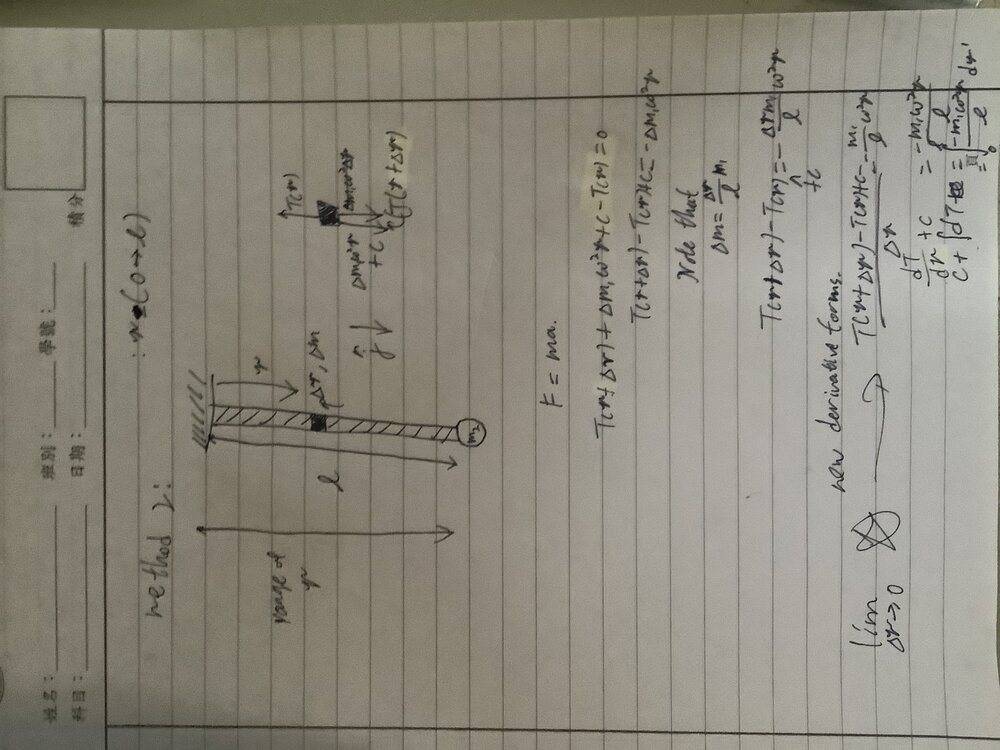 姓名：
班別：
學號：
科目：
日期：
積分
method 2:
range of r
l
r
Δr, Δm
m2
T(r)
Δm,ω²r
+C
T(r+Δr)
F = ma.
T(r+Δr) + Δm,ω²r + C - T(r) = 0
T(r+Δr) - T(r) + C = -Δm,ω²r
Note that
Δm = Δr/l m1
T(r+Δr) - T(r) = - Δr m1 ω²r / l
+C
new derivative forms.
lim Δr→0
T(r+Δr) - T(r) + C / Δr = - m1/l ω²r
dT/dr + C = -m1ω²r / l